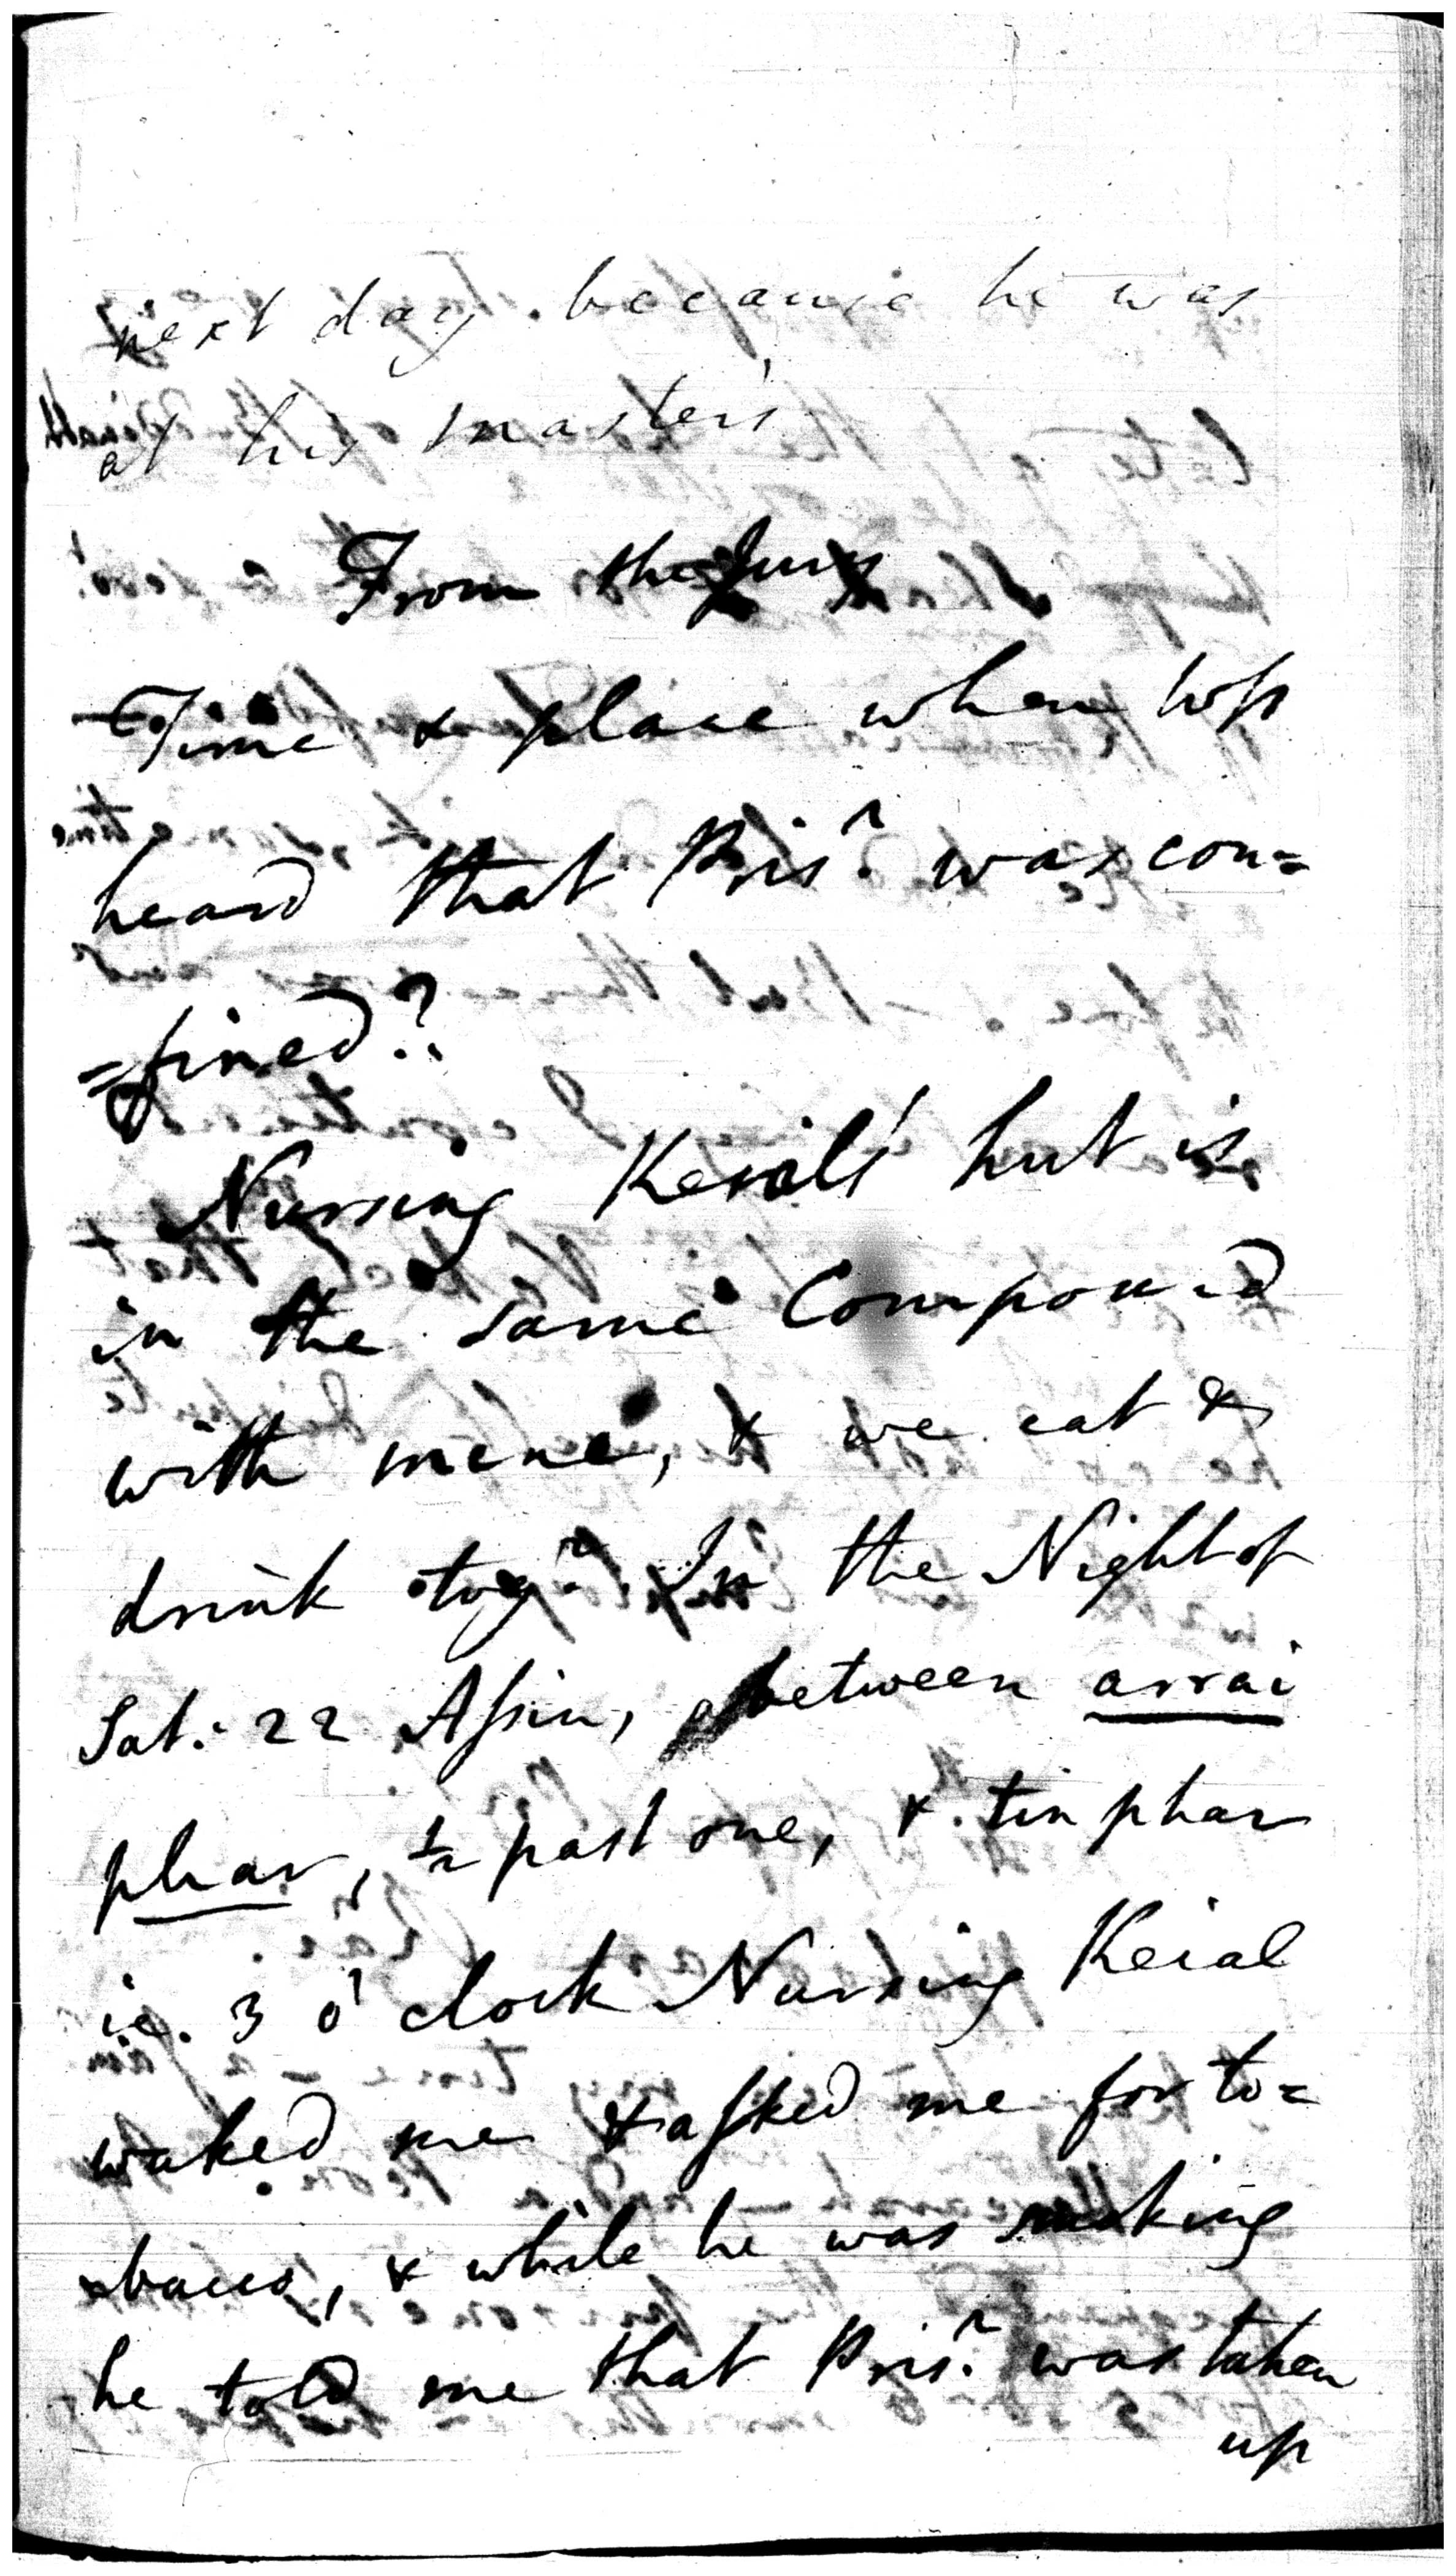 next day because he was
at his master's
From the Jury
Time & place when Wss
heard that Prisr. was con=
=fined?
Nursing Keral's hut is
in the same Compound
with mine, & we eat &
drink togr. In the Night of
Sat: 22 Assin, between arrai
phar, ½ past one, & tin phar
ie. 3 o'clock Nursing Keral
waked me & asked me for to=
=bacco, & while he was smoking
he told me that Prisr. was taken
up